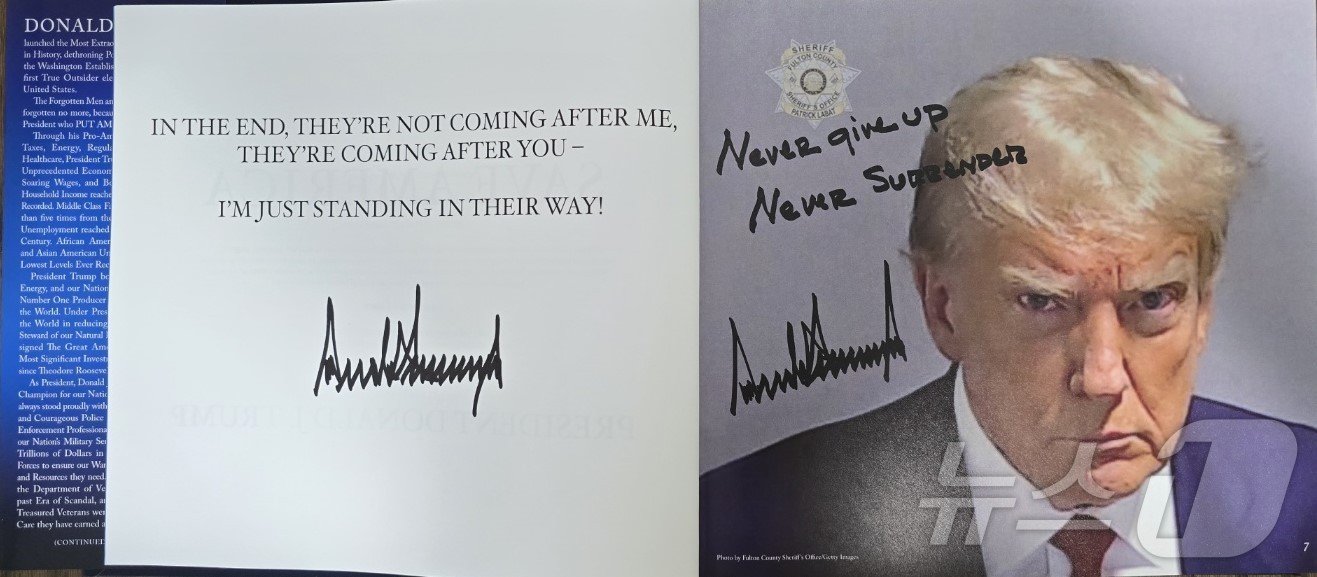 DONALD
launched the Most
in History, dethroning
the Washington
first True Outsider
United States.
The Forgotten Men
forgotten no more,
President who PUT
Through his
Taxes, Energy,
Healthcare, President
Unprecedented
Soaring Wages, and
Household Income
Recorded. Middle Class
than five times from
Unemployment reached
Century. African
and Asian American
Lowest Levels Ever
President Trump
Energy, and our
Number One Producer
the World. Under
the World in reducing
Steward of our Natural
signed The Great
Most Significant
since Theodore
As President, Donald
Champion for our
always stood proudly with
and Courageous Police
Enforcement
our Nation's Military
Trillions of Dollars in
Forces to ensure our
and Resources they need.
the Department of
past Era of Scandal,
Treasured Veterans
Care they have earned
(CONTINUED
IN THE END, THEY'RE NOT COMING AFTER ME,
THEY'RE COMING AFTER YOU –
I'M JUST STANDING IN THEIR WAY!
SHERIFF
FULTON COUNTY
SHERIFF'S OFFICE
PATRICK LABAT
Never give up
Never Surrender
뉴스1
Photo by Fulton County Sheriff's Office/Getty Images
7